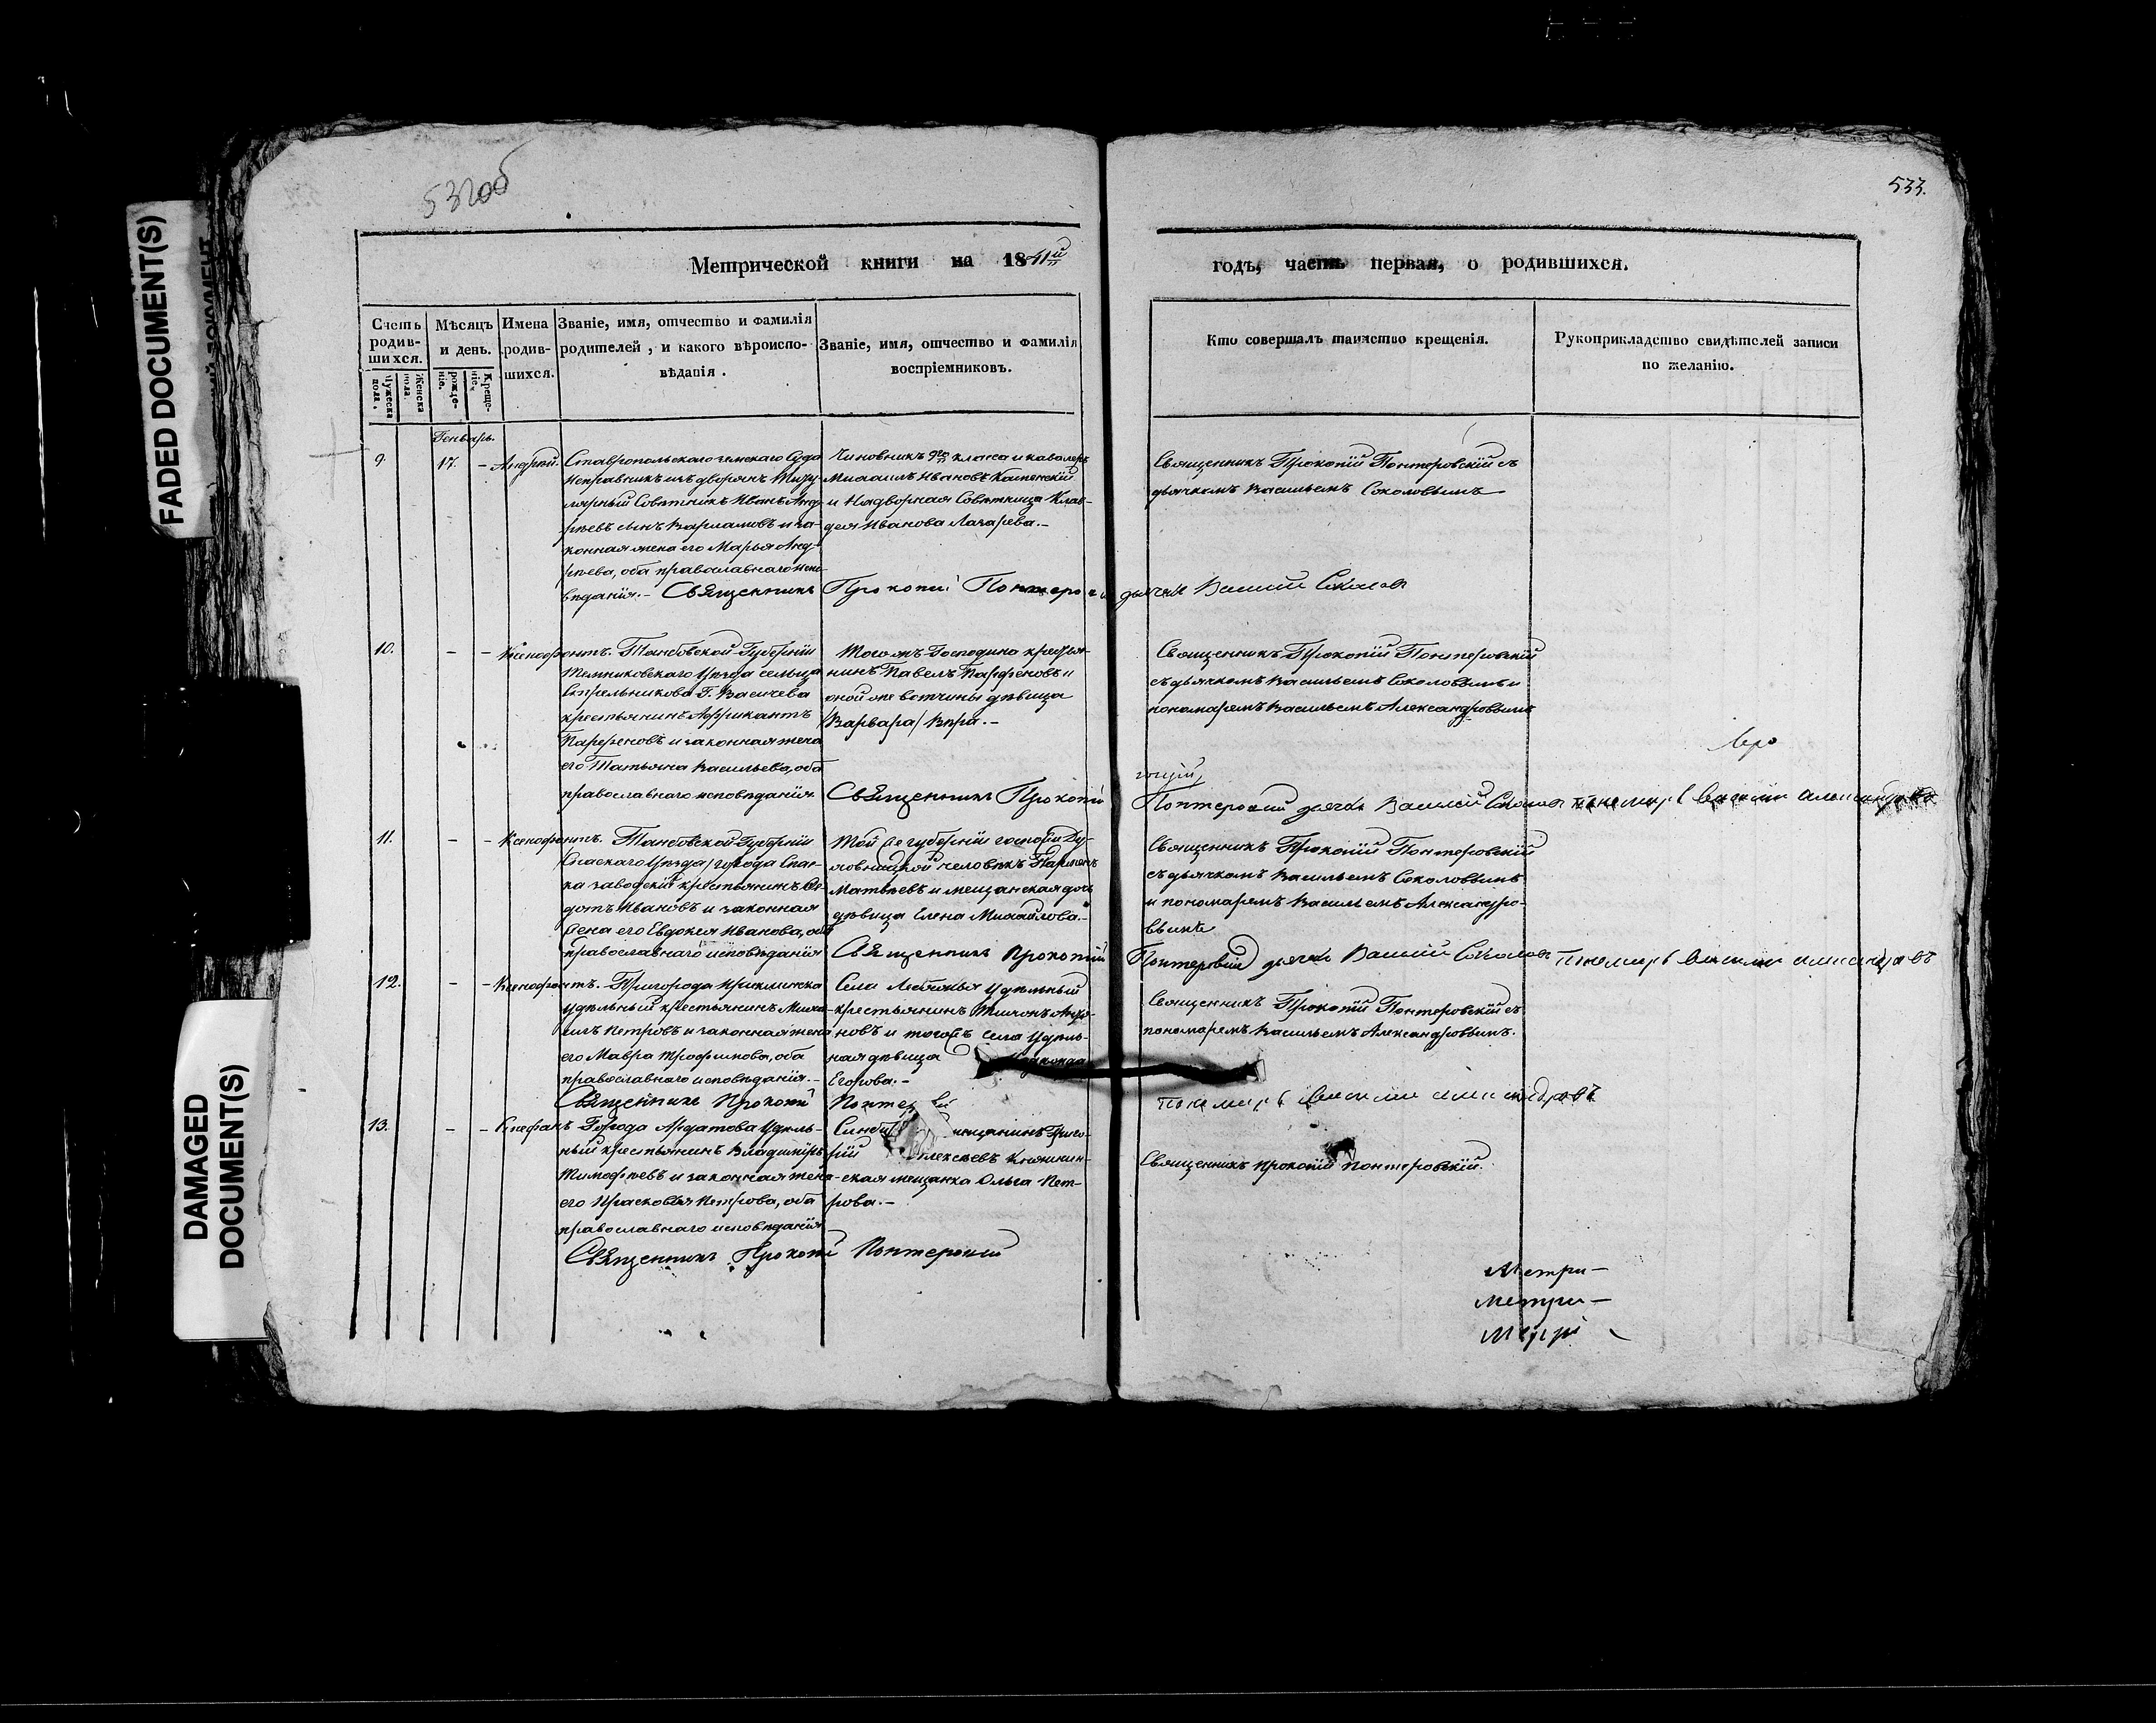 FADED DOCUMENT(S)
DAMAGED
DOCUMENT(S)
532об
533.
Метрической книги на 1841й
годъ, часть первая, о родившихся.
Счетъ родившихся.
Мужеска пола.
Женска пола.
Мѣсяцъ и день.
рожденіе.
Крещеніе.
Имена родившихся.
Званіе, имя, отчество и фамилія
родителей, и какого вѣроиспо-
вѣданія.
Званіе, имя, отчество и фамилія
воспріемниковъ.
Кто совершалъ таинство крещенія.
Рукоприкладство свидѣтелей записи
по желанію.
Генварь.
9. 17. - Андрей.
Ставропольскаго земскаго Суда
Исправникъ изъ дворянъ Титу-
лярный Совѣтникъ Иванъ Анд-
рѣевъ сынъ Варламовъ и за-
конная жена его Марья Анд-
рѣева, оба православнаго испо-
вѣданія.-
Чиновникъ 9го класса и кавалеръ
Михаилъ Ивановъ Каменскій
и Надворная Совѣтница Клав-
дея Иванова Лазарева.-
Священникъ Прокопій Понтеровскій съ
дьячкомъ Васильемъ Соколовымъ
Священникъ Прокопій дьячекъ Василій Соколовъ
10. - - Ксенофонтъ.
Тамбовской Губерніи
Темниковскаго Уѣзда сельца
Стрельникова Г.
крестьянинъ Африкантъ
Парфеновъ и законная жена
его Татьяна Васильева, оба
православнаго исповѣданія.
Того жъ Господина крестья-
нинъ Павелъ Парфеновъ и
оной же вотчины дѣвица
Варвара
Священникъ Прокопій Понтеровскій
съ дьячкомъ Васильемъ Соколовымъ и
пономаремъ Васильемъ Александровымъ
Священникъ Прокопій
Понтеровскій дьячекъ Василій Соколовъ пономарь Василій Александровъ
11. - - Ксенофонтъ.
Тамбовской Губерніи
Спаскаго Уѣзда города Спас-
ка заводскій крестьянинъ Фе-
дотъ Ивановъ и законная
жена его Евдокея Иванова, оба
православнаго исповѣданія
Той же губерніи
человѣкъ Парменъ
Матвѣевъ и мещанская дочь
дѣвица Елена Михайлова.-
Священникъ Прокопій Понтеровскій
съ дьячкомъ Васильемъ Соколовымъ
и пономаремъ Васильемъ Александро-
вымъ
Священникъ Прокопій
Понтеровскій дьячекъ Василій Соколовъ пономарь Василій Александровъ
12. - - Ксенофонтъ.-
Пригорода
удѣльный крестьянинъ Миха-
илъ Петровъ и законная жена
его Мавра Трофимова, оба
православнаго исповѣданія.-
Села Удѣльный
крестьянинъ
новъ и тогожъ села удѣль-
ная дѣвица
Егорова.-
Священникъ Прокопій Понтеровскій съ
пономаремъ Васильемъ Александровымъ.
Священникъ Прокопій
пономарь Василій Александровъ
13. - - Стефанъ
Города Ардатова удѣль-
ный крестьянинъ Владимиръ
Тимофѣевъ и законная жена
его Прасковья Петрова, оба
православнаго исповѣданія
мещанинъ Григо-
рій Алексѣевъ Княгинин-
ская мещанка Ольга Пет-
рова.-
Священникъ Прокопій Понтеровскій.
Священникъ Прокопій Понтеровскій
Метри-
Метри-
Метри